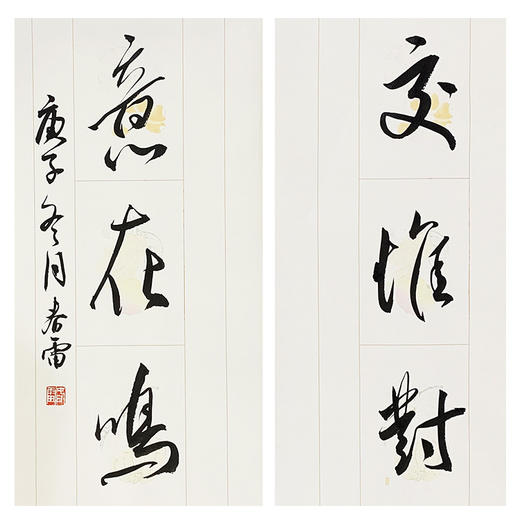 交惟對
意在鳴
庚子冬月春雷